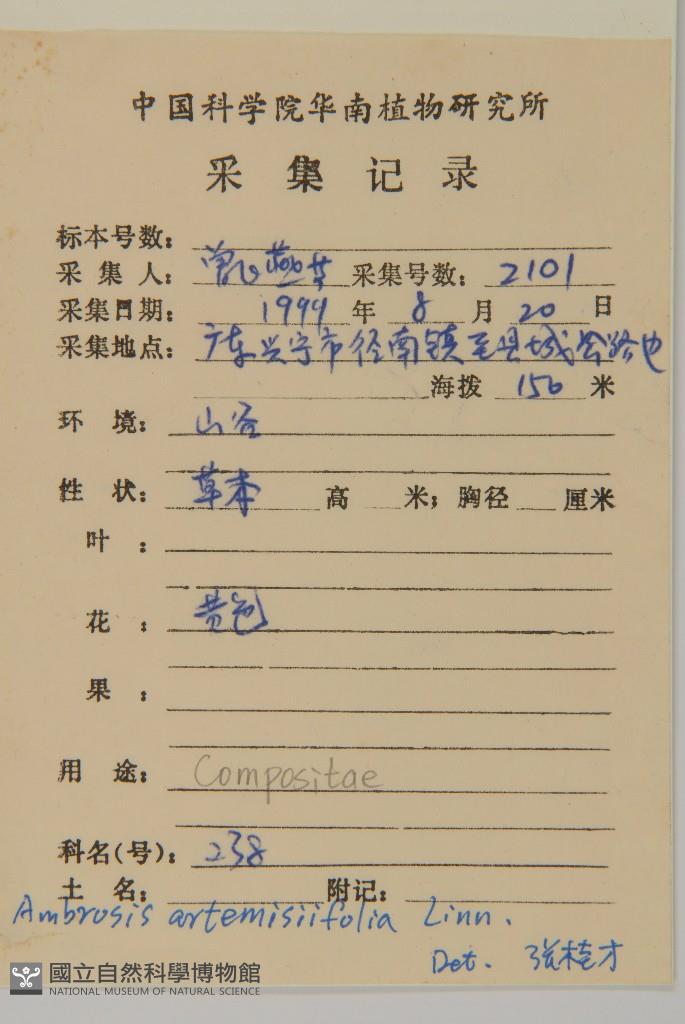 中国科学院华南植物研究所
采集记录
标本号数：
采集人：曾飞燕等 采集号数：2101
采集日期：1999年8月20日
采集地点：广东兴宁市径南镇至县城公路边
海拨 150 米
环境：山谷
性状：草本 高 米；胸径 厘米
叶：
花：黄色
果：
用途：Compositae
科名(号)：238
土名： 附记：
Ambrosis artemisiifolia Linn.
Det. 张桂才
國立自然科學博物館
NATIONAL MUSEUM OF NATURAL SCIENCE